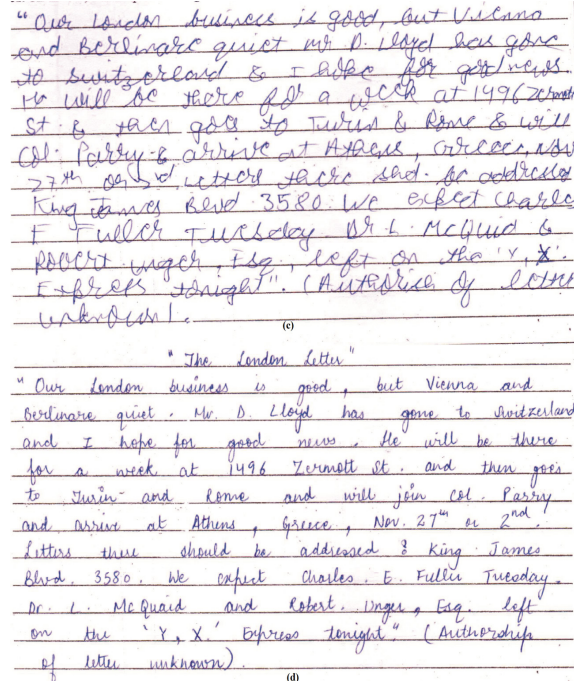 “Our London business is good, but Vienna
and Berlinare quiet mr D. Lloyd has gone
to switzerland & I hope for good news.
He will be there for a week at 1496 Zermott
St & then goes to Turin & Rome & will
Col. Parry & arrive at Athens, Greece, Nov
27th or 2nd, letters there shd. be addressed
King James Blvd. 3580. We expect Charles
E Fuller Tuesday Dr L. McQuid &
Robert unger, Esq, left on the 'Y, X.
Express tonight". (Authorise of letter
unknown).
(c)
" The London Letter"
“ Our London business is good, but Vienna and
Berlinare quiet. Mr. D. Lloyd has gone to Switzerland
and I hope for good news. He will be there
for a week at 1496 Zermott St. and then goes
to Turin- and Rome and will join col. Parry
and arrive at Athens, Greece, Nov. 27th or 2nd.
Letters there should be addressed : King James
Blvd. 3580. We expect Charles. E. Fuller Tuesday.
Dr. L. McQuaid and Robert. Unger, Esq. left
on the 'Y, X.' Express tonight" (Authorship
of letter unknown).
(d)